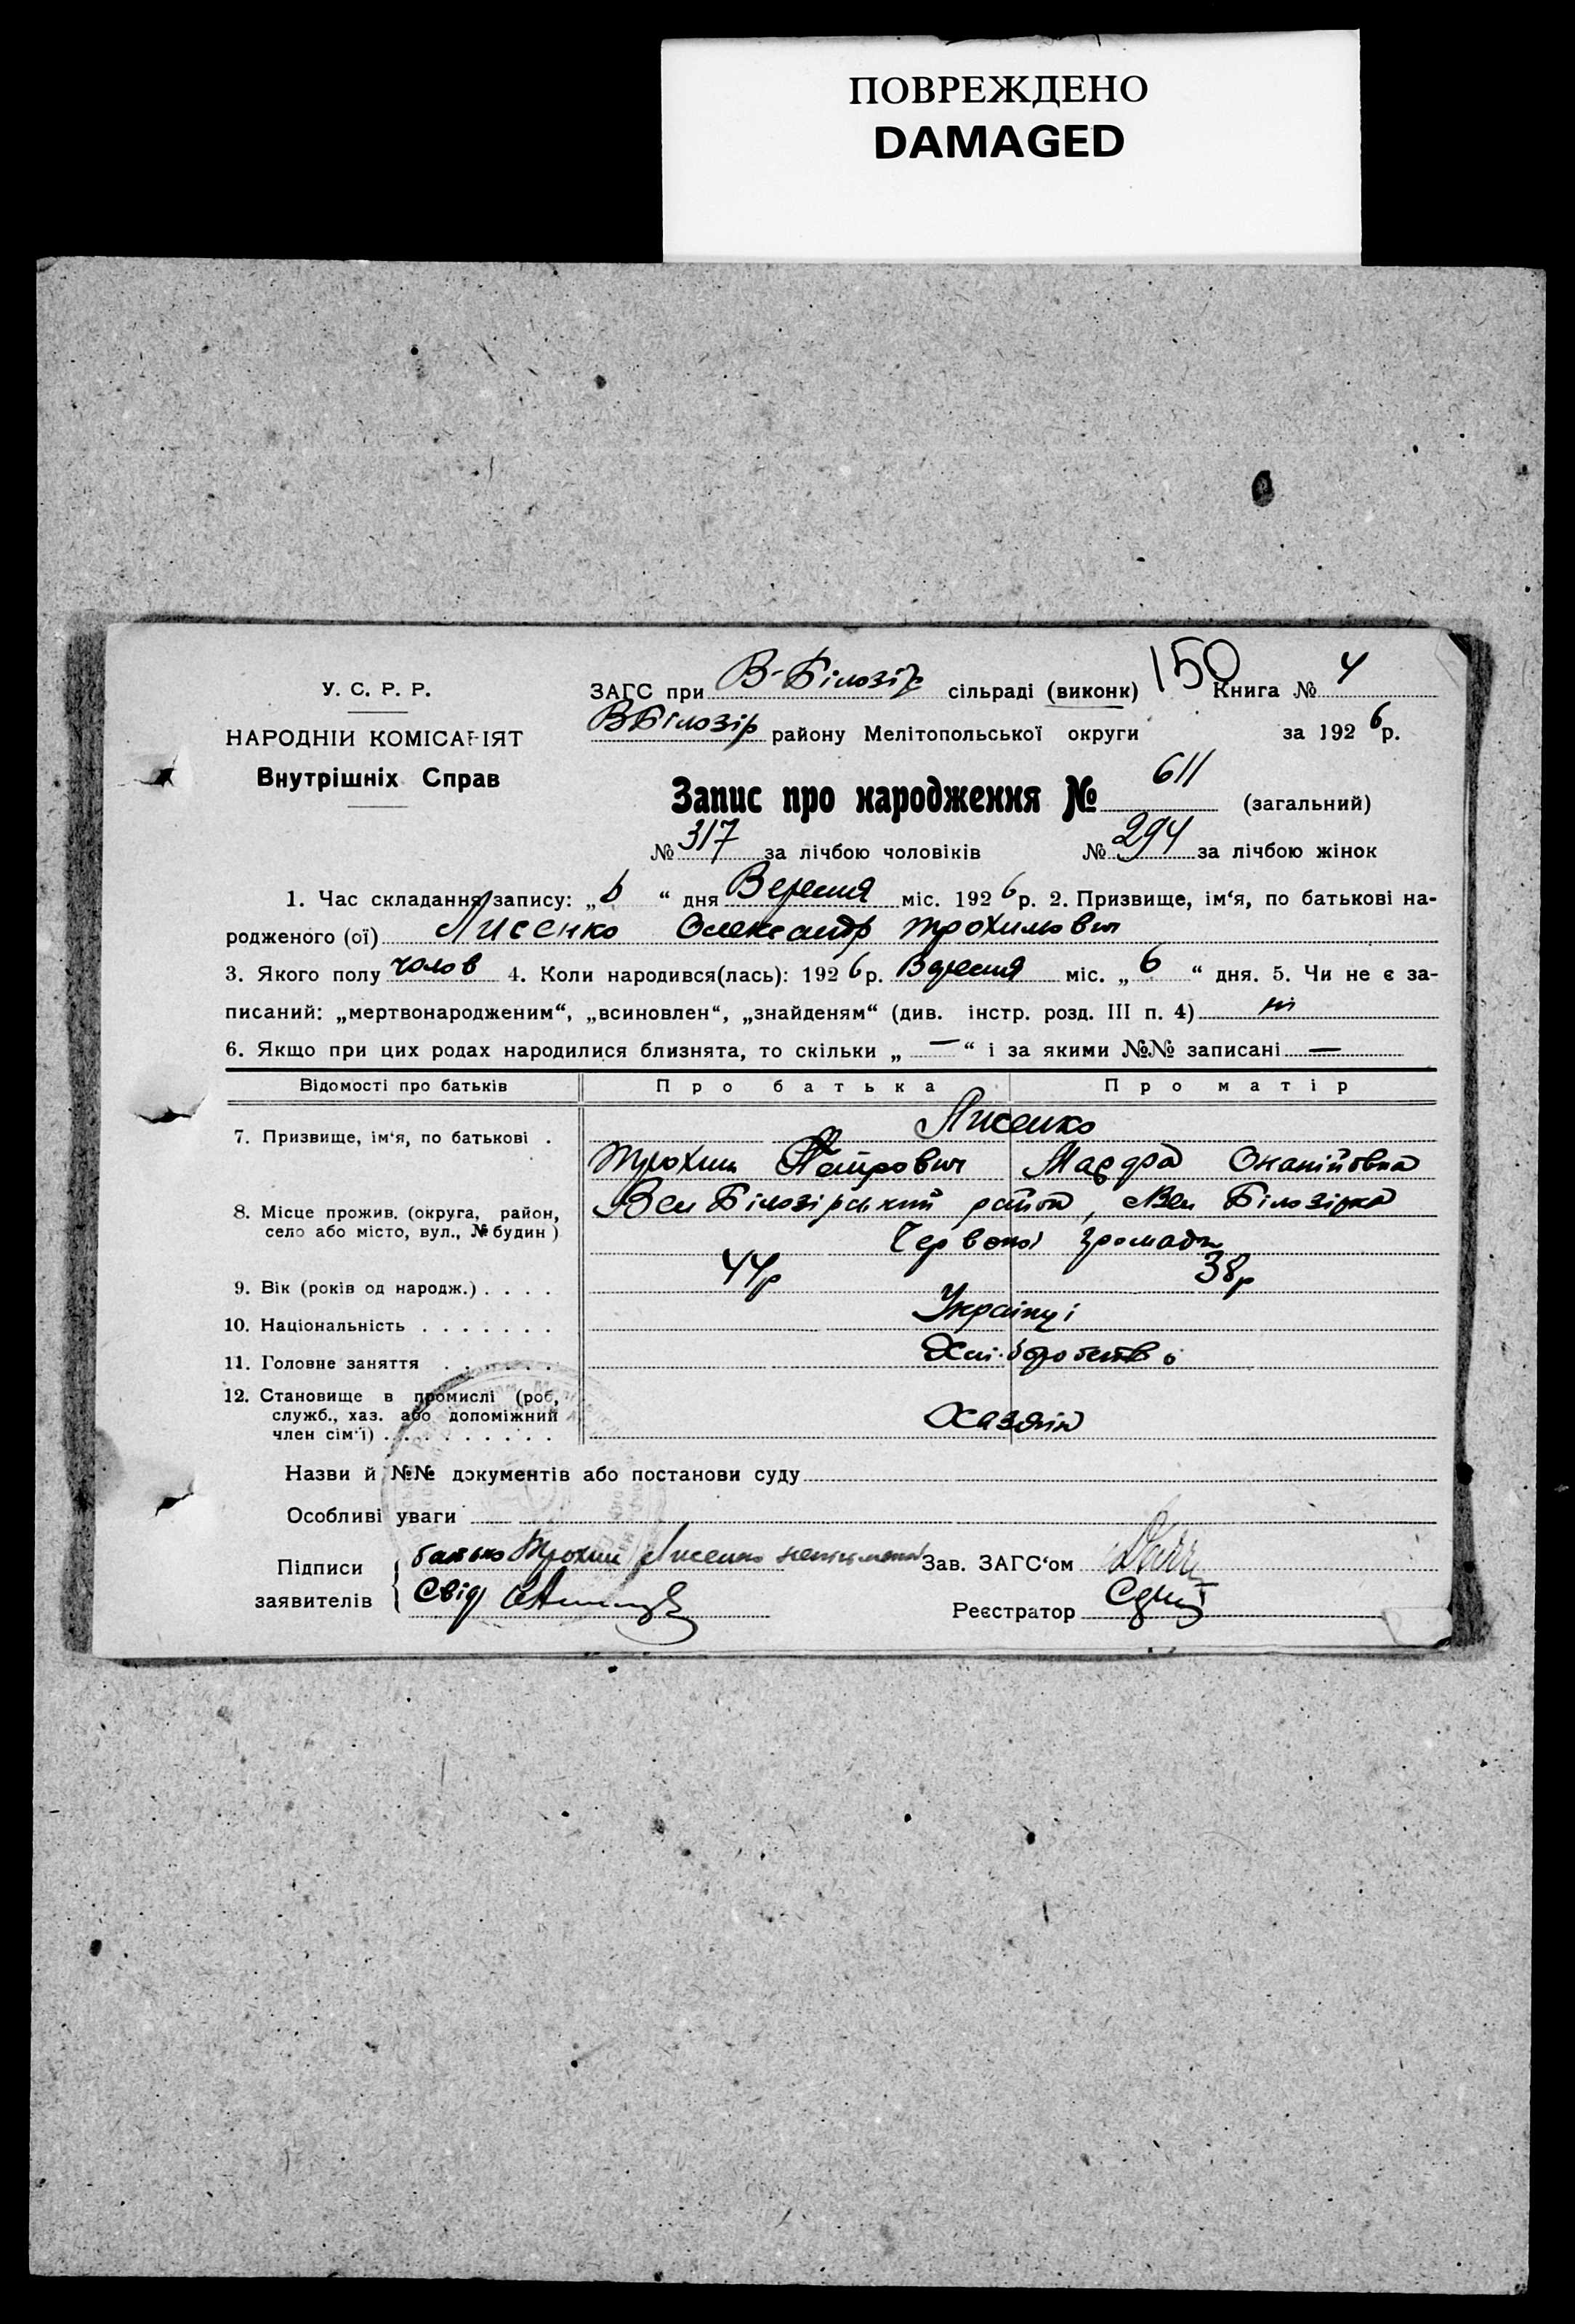 ПОВРЕЖДЕНО
DAMAGED
У. С. Р. Р.
НАРОДНІЙ КОМІСАРІЯТ
Внутрішніх Справ
ЗАГС при В-Білозір сільраді (виконк) 150 Книга № 4
ВБілозір району Мелітопольської округи за 1926 р.
Запис про народження № 611 (загальний)
№ 317 за лічбою чоловіків № 294 за лічбою жінок
1. Час складання запису: „6“ дня Вересня міс. 1926 р. 2. Призвище, ім‘я, по батькові на-
родженого (ої) Лисенко Олександр Трохимович
3. Якого полу чолов 4. Коли народився(лась): 1926 р. Вересня міс. „6“ дня. 5. Чи не є за-
писаний: „мертвонародженим“, „всиновлен“, „знайденям“ (див. інстр. розд. III п. 4) ні
6. Якщо при цих родах народилися близнята, то скільки „—“ і за якими №№ записані —
Відомості про батьків Про батька Про матір
7. Призвище, ім‘я, по батькові . Лисенко
Трохим Петрович Онаніївна
8. Місце прожив. (округа, район, село або місто, вул., № будин) Вел Білозірський район, Вел Білозірка
Червоної громади
9. Вік (років од народж.) . . . . 44р 38р
10. Національність . . . . . . . Українці
11. Головне заняття . . . . . . Хліборобство
12. Становище в промислі (роб,
служб., хаз. або допоміжний
член сім‘ї) . . . . . . . . . . Хазяїн
Назви й №№ документів або постанови суду
Особливі уваги
Підписи заявителів батько Трохим Лисенко неписьмений Зав. ЗАГС‘ом
Свід Реєстратор